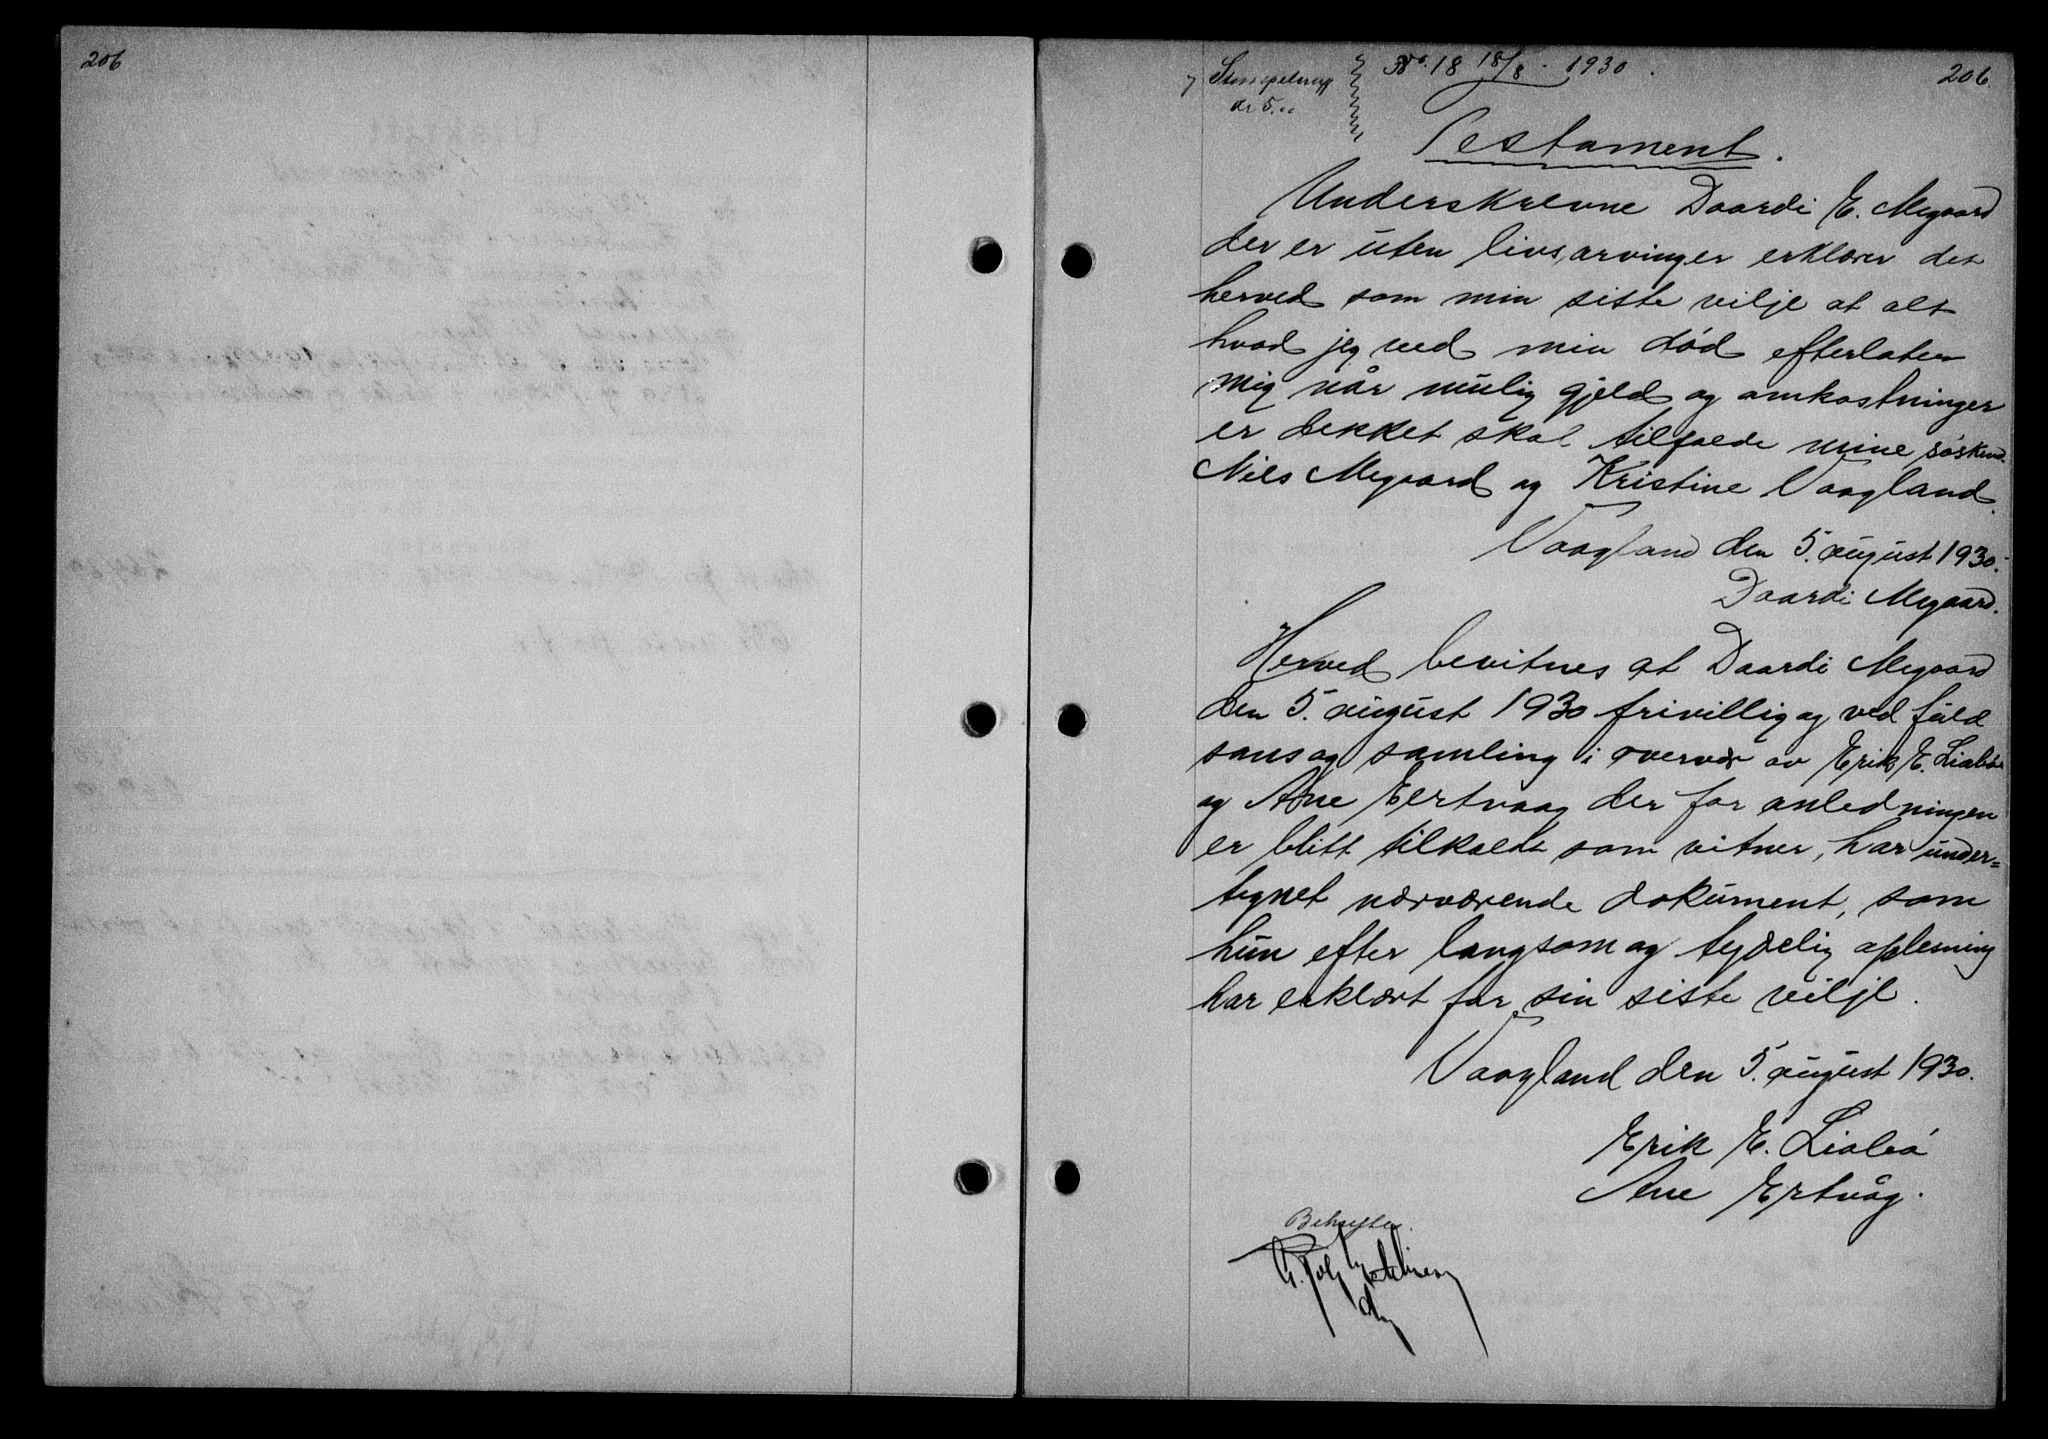 206
No. 18 18/8 - 1930.
206.
Stempelmrk
kr 5.00
Testament.
Underskrevne Daardi E. Megaard
der er uten livsarvinger erklærer det
herved som min siste vilje at alt
hvad jeg ved min död efterlater
mig når mulig gjeld og omkostninger
er dekket skal tilfalde mine söskend.
Nils Megaard og Kristine Vaagland.
Vaagland den 5. august 1930.
Daardi Megaard.
Herved bevitnes at Daardi Megaard
den 5. august 1930 frivillig og ved fuld
sans og samling i overvær av Erik E. Liabö
og Ane Eertvaag der for anledningen
er blitt tilkaldt som vitner, har under=
tegnet nærværende dokument, som
hun efter langsom og tydelig oplesning
har erklært for sin siste vilje.
Vaagland den 5. august 1930.
Erik E. Liabö
Ane Ertvåg.
Bekreftes.